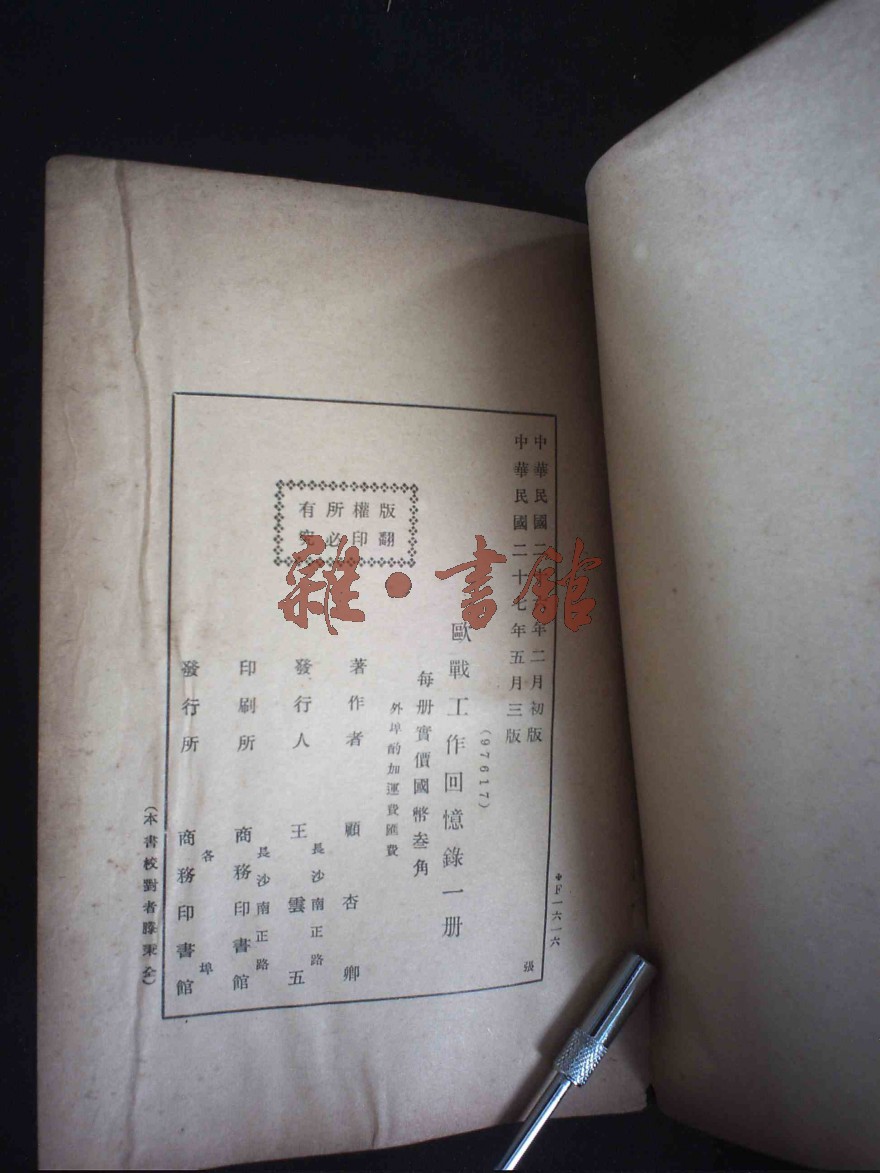 中華民國二年二月初版
中華民國二十七年五月三版
✽F一六一六
張
(97617)
歐戰工作回憶錄一册
每册實價國幣叁角
外埠酌加運費匯費
版權所有
翻印必究
著作者 顧杏卿
發行人 王雲五
長沙南正路
印刷所 商務印書館
長沙南正路
發行所 商務印書館
各埠
(本書校對者滕秉全)
雜·書館